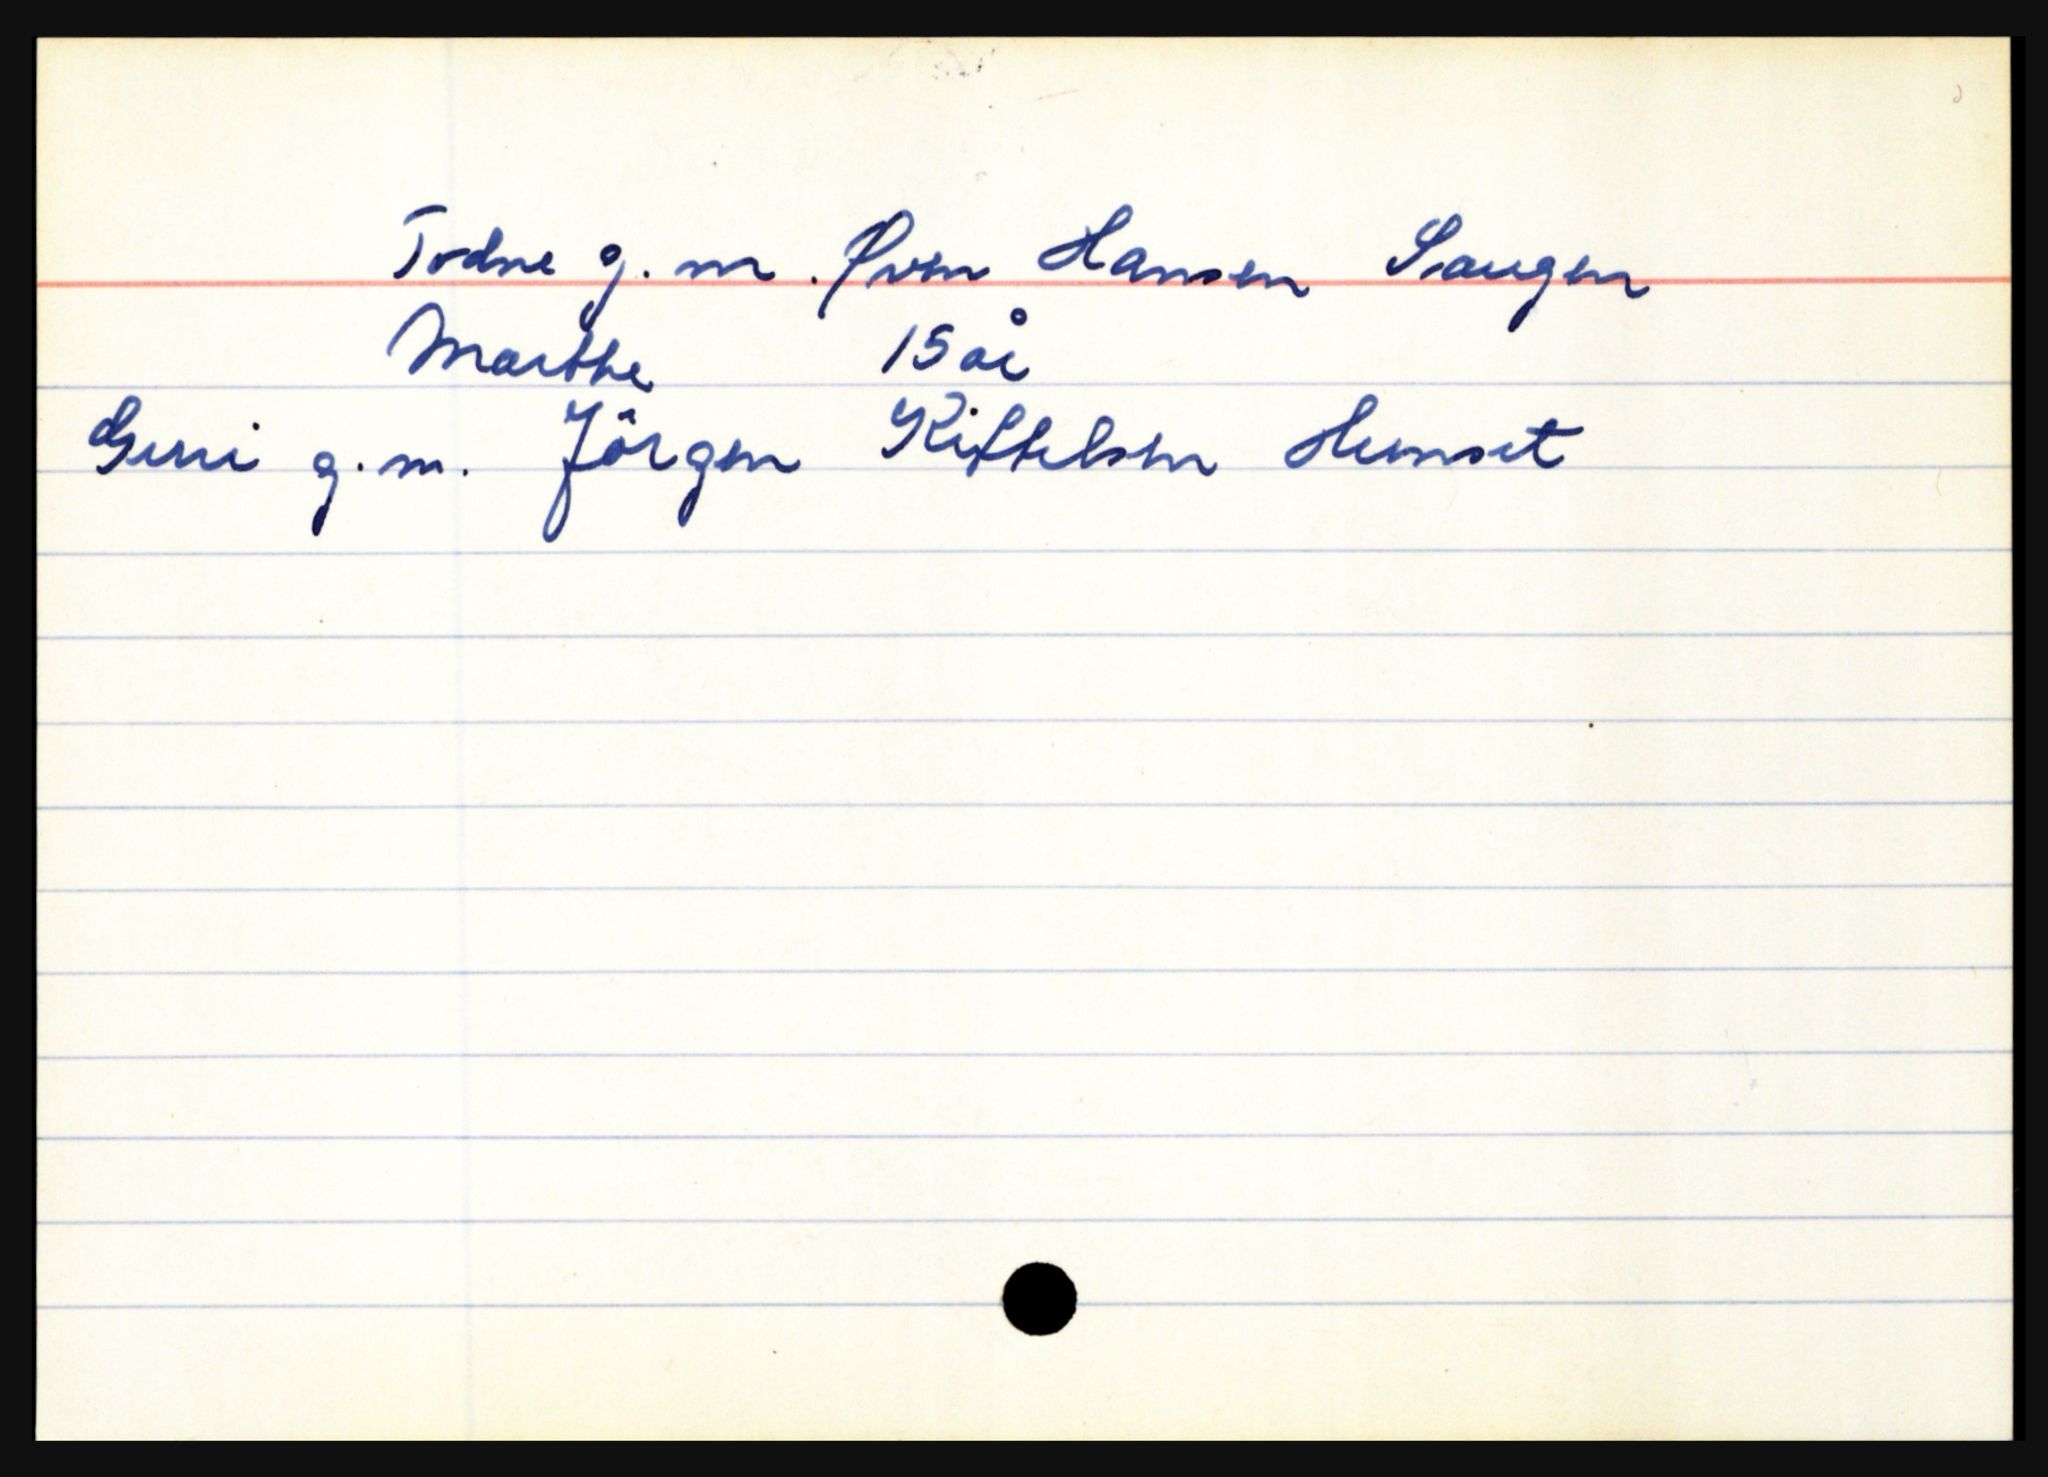 Todne g.m. Øven Hansen Saugen
Marthe 15 år
Guri g.m. Jörgen Kittelsen Hemset